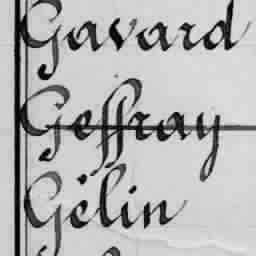 Gavard
Geffray
Gélin